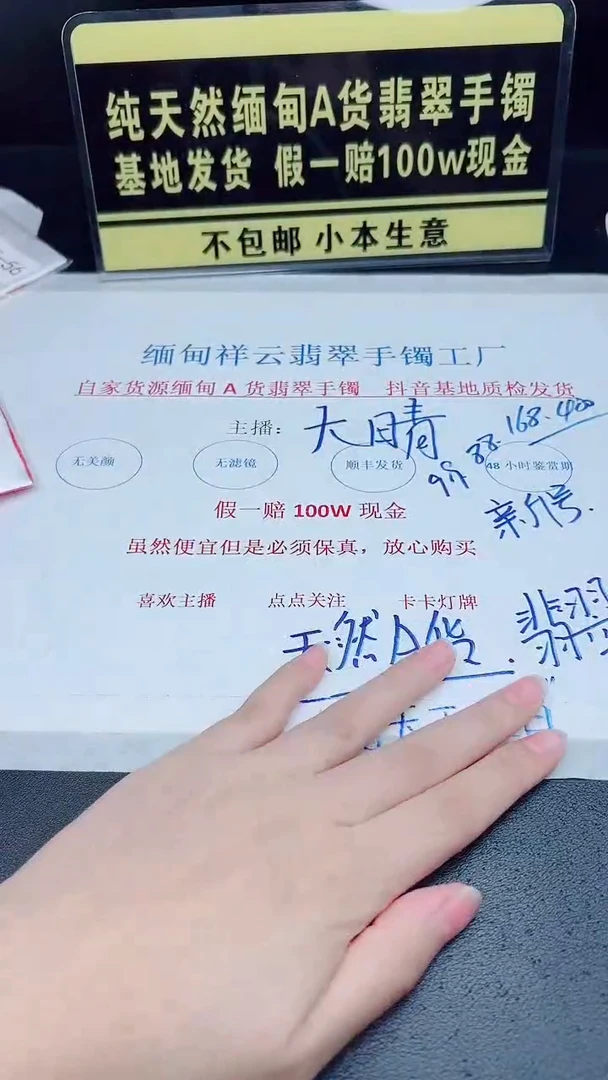 纯天然缅甸A货翡翠手镯
基地发货 假一赔100w现金
不包邮 小本生意
-56
缅甸祥云翡翠手镯工厂
自家货源缅甸A货翡翠手镯 抖音基地质检发货
主播: 大晴
99. 88. 168. 400
无美颜 无滤镜 顺丰发货 48小时鉴赏期
亲斤号.
假一赔 100W 现金
虽然便宜但是必须保真，放心购买
喜欢主播 点点关注 卡卡灯牌
天然A货. 翡翠